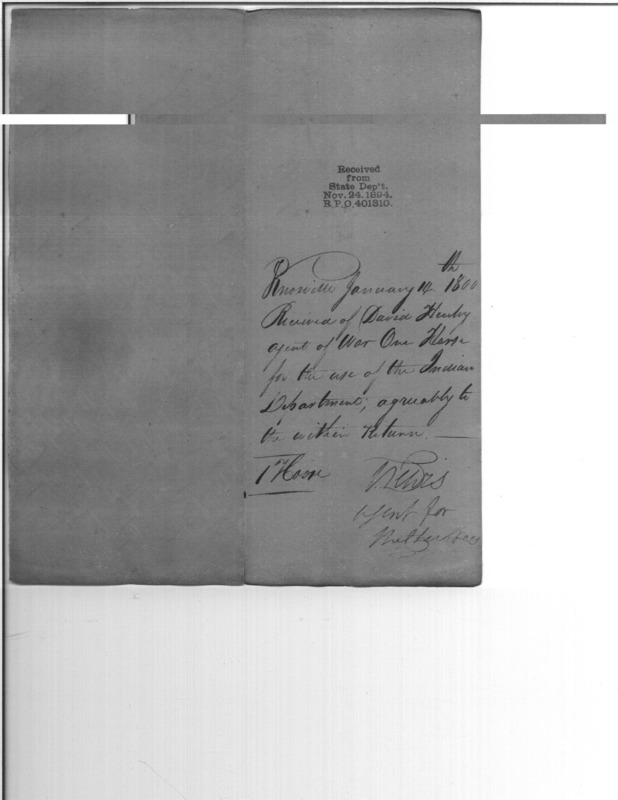 Received
from
State Dep't.
Nov. 24. 1894.
R.P.O. 401310.
Knoxville January 14th 1800
Received of David Henley
agent of War One Horse
for the use of the Indian
Department; agreeably to
the within Return.
1 Horse
T. Lewis
agent for